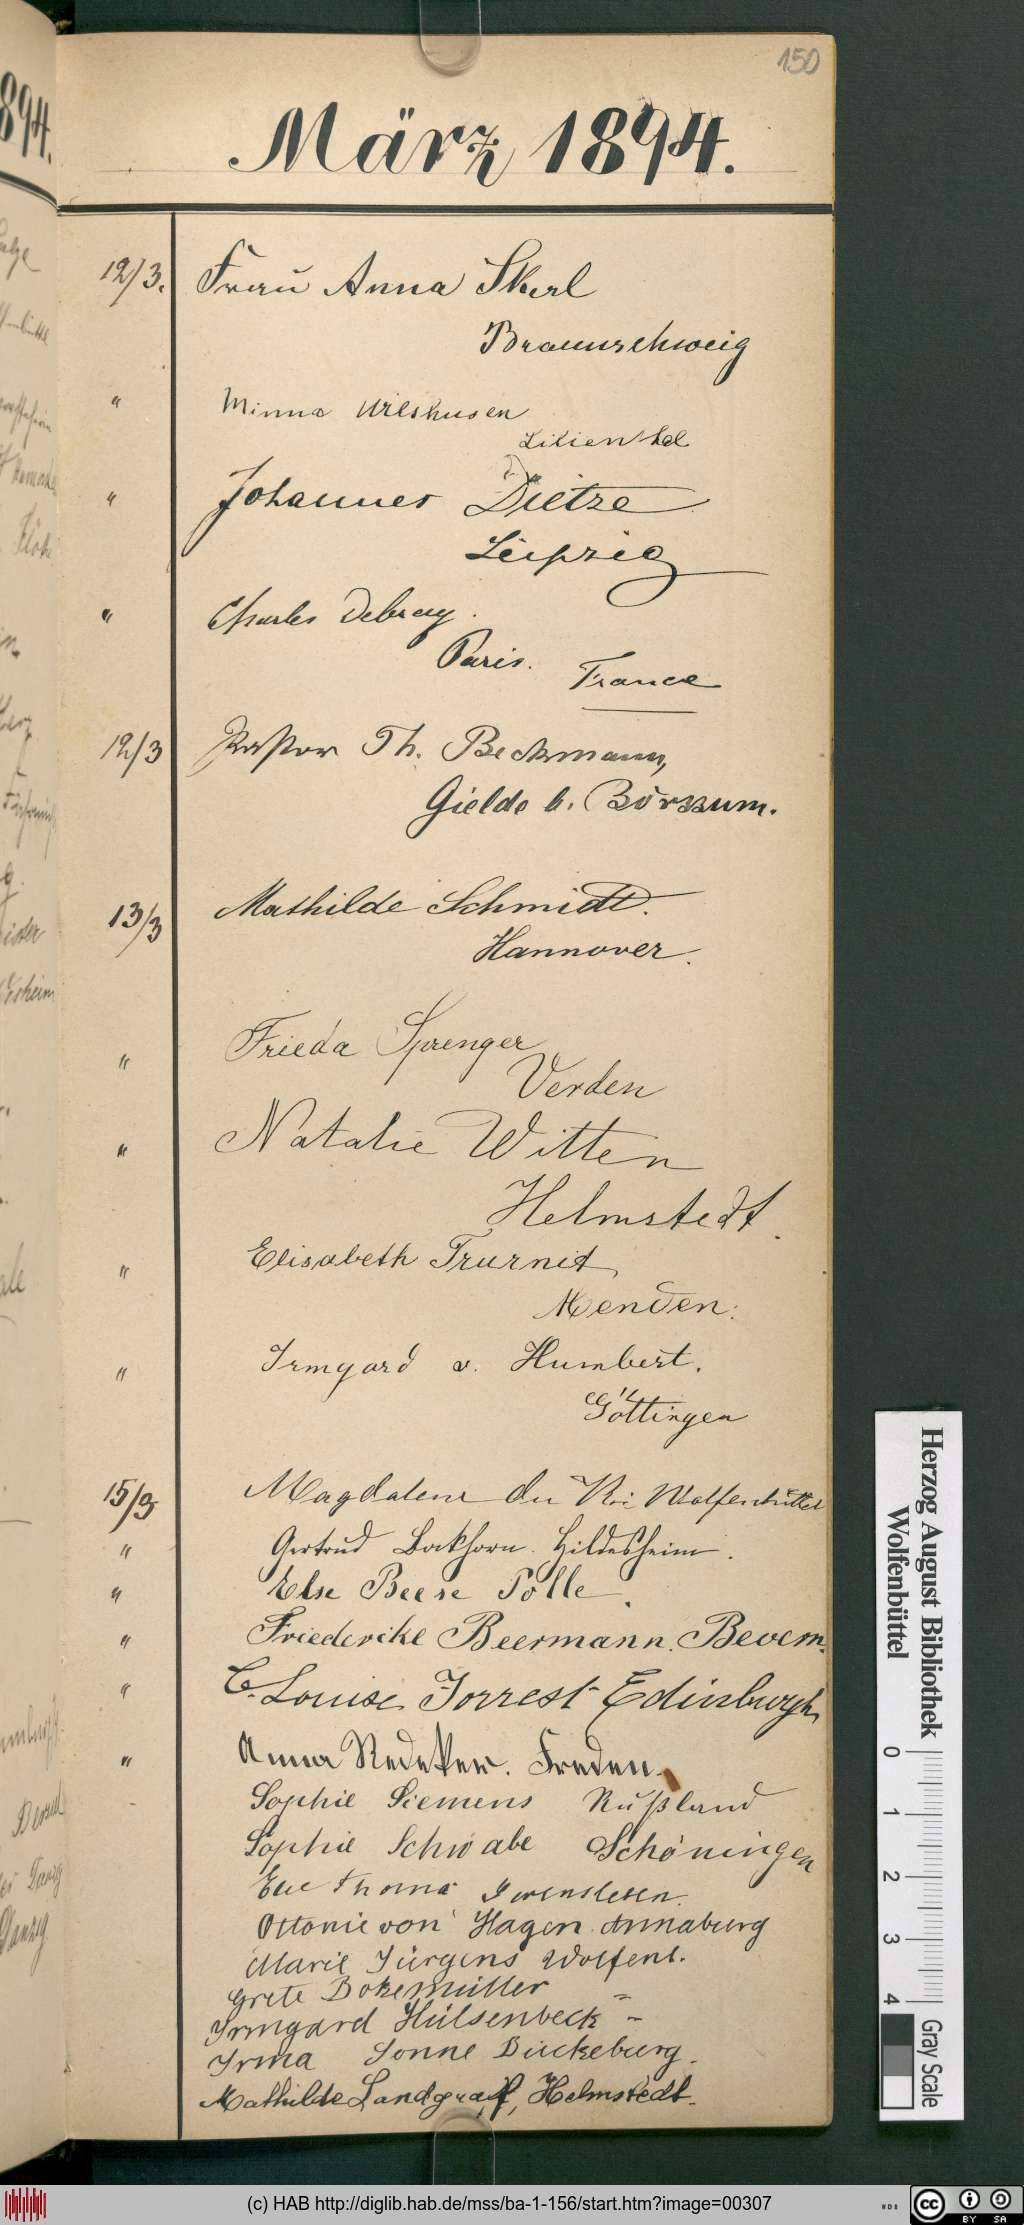 150
März 1894.
12/3. Frau Anna Skerl
Braunschweig
" Minna Wilshusen
Lilienthal
" Johannes Dietze
Leipzig
" Charles Debray.
Paris. France
12/3 Pastor Th. Beckmann,
Gielde b. Börssum.
13/3 Mathilde Schmidt.
Hannover.
" Frieda Sprenger
Verden
" Natalie Witten
Helmstedt.
" Elisabeth Trurnit
Menden.
" Irmgard v. Humbert.
Göttingen
15/3 Magdalene du Roi Wolfenbüttel
" Gertrud Bockhorn. Hildesheim.
" Else Beese Polle.
" Friederike Beermann. Bevern.
" C. Louise Forrest Edinburgh
" Anna Redeker. Freden.
Sophie Siemens Rußland
Sophie Schwabe Schöningen
Thoma
Ottonie von Hagen Annaburg
Marie Jürgens Wolfenb.
Grete Bokemüller "
Irmgard Hülsenbeck "
Irma Sonne Bückeburg.
Mathilde Landgraff, Helmstedt.
Herzog August Bibliothek
Wolfenbüttel
0 1 2 3 4 Gray Scale
(c) HAB http://diglib.hab.de/mss/ba-1-156/start.htm?image=00307
WDB
cc BY SA